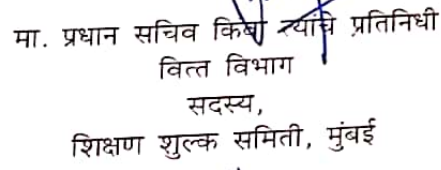 मा. प्रधान सचिव किंवा त्यांचे प्रतिनिधी
वित्त विभाग
सदस्य,
शिक्षण शुल्क समिती, मुंबई